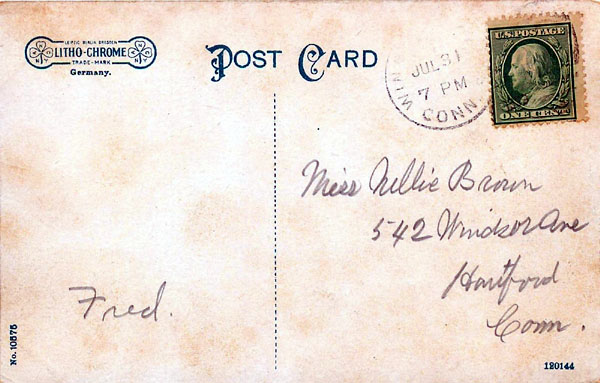 LEIPZIG BERLIN DRESDEN
LITHO-CHROME
TRADE-MARK
Germany.
POST CARD
JUL 31
7 PM
CONN
U.S. POSTAGE
ONE CENT
Miss Nellie Brown
542 Windsor Ave
Hartford
Conn.
Fred.
No. 10575
120144